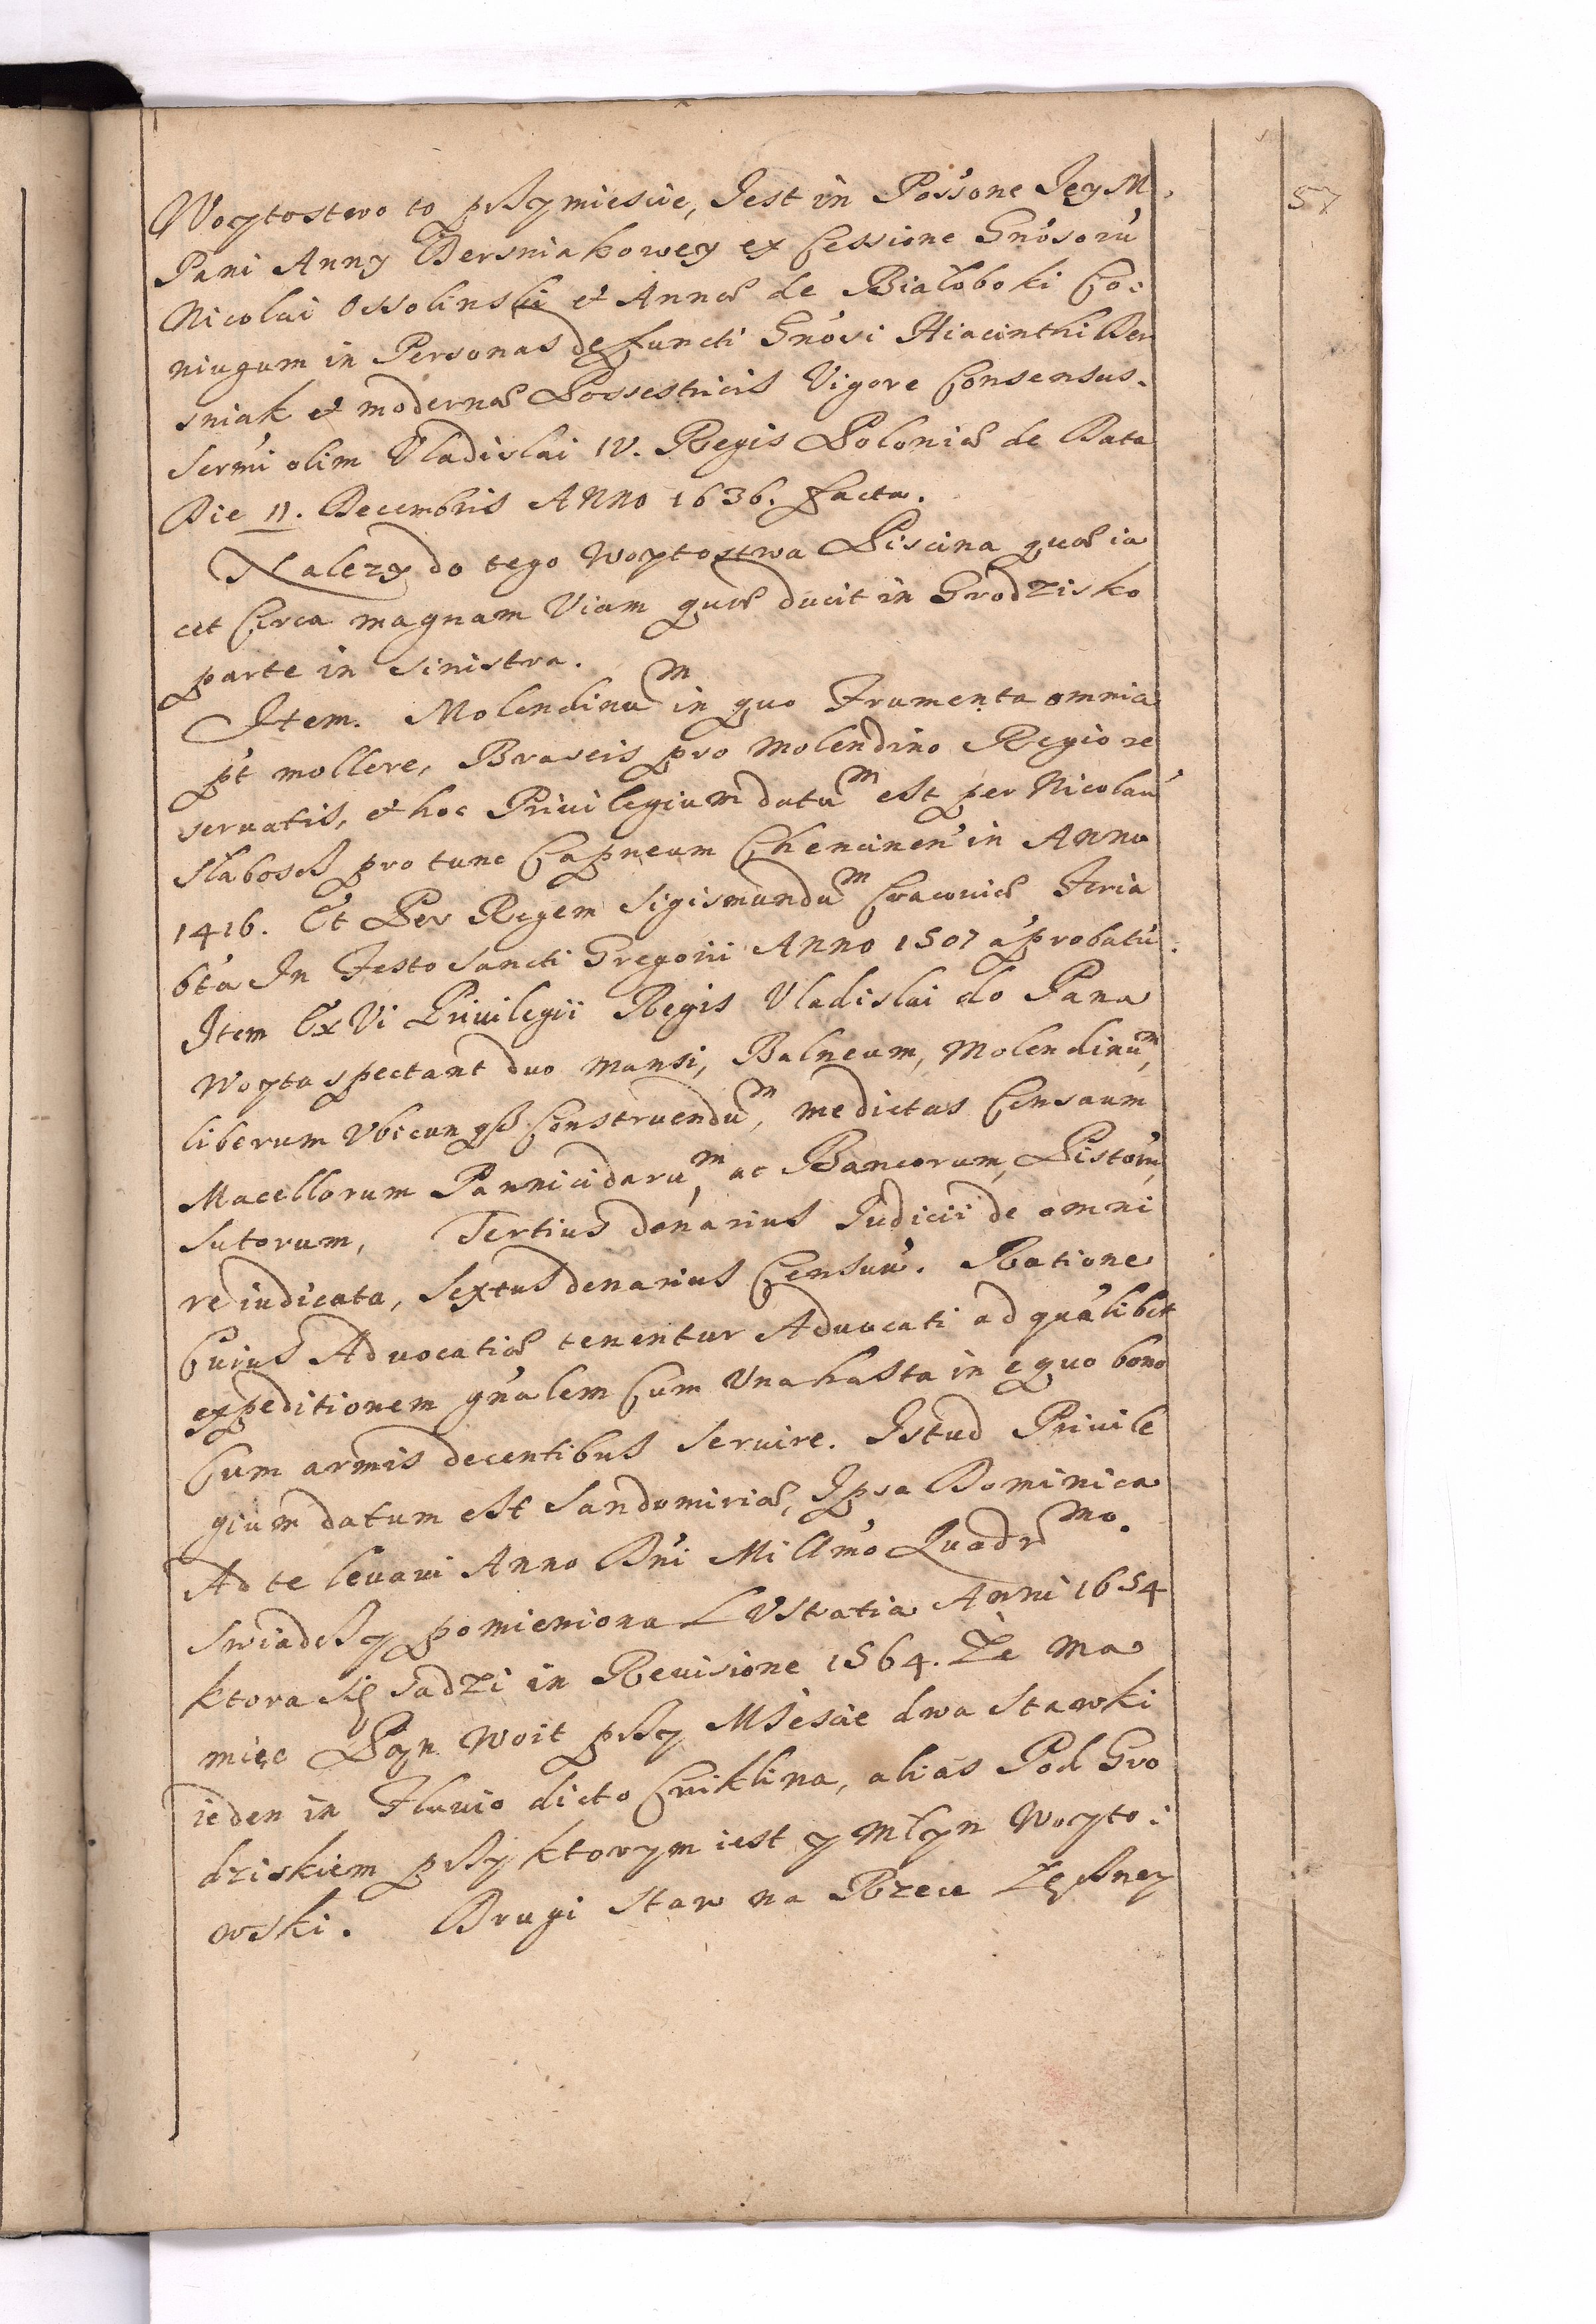 57
Woytostwo to przymieście, Jest in Poss'one Jey M.
Pani Anny Dersniakowey ex Cessione Gn'osoru'
Nicolai Ossolinski et Annæ de Białoboki Co:
niugum in Personas defuncti Gn'osi Hiacinthi Der
sniak et modernæ Possestricis Vigore Consensus.
Serm'i olim Vladislai IV. Regis Poloniæ de Data
Die 11. Decembris Anno 1636. facta.
Nalezy do tego Woytostwa Piscina quæ ia
cet Circa magnam Viam quæ ducit in Grodzisko
parte in Sinistra.
Item. Molendinu^m in quo Frumenta omnia
p't mollere, Braseis pro Molendino Regio re
seruatis, et hoc Priuilegium datu^m est per Nicolau'
Słabosz pro tunc Capneum Chencinen' in Anno
1416. Et Per Regem Sigismundu^m Cracouiæ Feria
bt'a In Festo Sancti Gregorii Anno 1507 a'probatu'.
Item Ex Vi Priuilegii Regis Vladislai do Pana
Woyta spectant duo Mansi, Balneum, Molendinu^m,
liberum Vbicunqs Construendu^m, medietas Censuum
Macellorum Pannicidaru^m, ac Bancorum, Pistoru',
Sutorum, Tertius denarius Iudicii de omni
re iudicata, Sextus denarius Censuu'. Ratione
Cuius Aduocatiæ tenentur Aduocati ad qua'libet
expeditionem gn'alem Cum Vna hasta in equo bono
Cum armis decentibus Seruire. Istud Priuile
gium datum est Sandomiriæ, Ipsa Dominica
Ad te leuaui Anno Dn'i Mill'mo Quadr^mo.
Swiadszy pomieniona LVstratia Anni 1654
ktora się sadzi in Reuisione 1564. Że ma
miec Pan Woit przy Mieście dwa Stawki
ieden in Fluuio dicto Cwiklina, alias Pod Gro
dziskiem przy ktorym iest y Młyn Woyto:
wski. Drugi Staw na Rzece